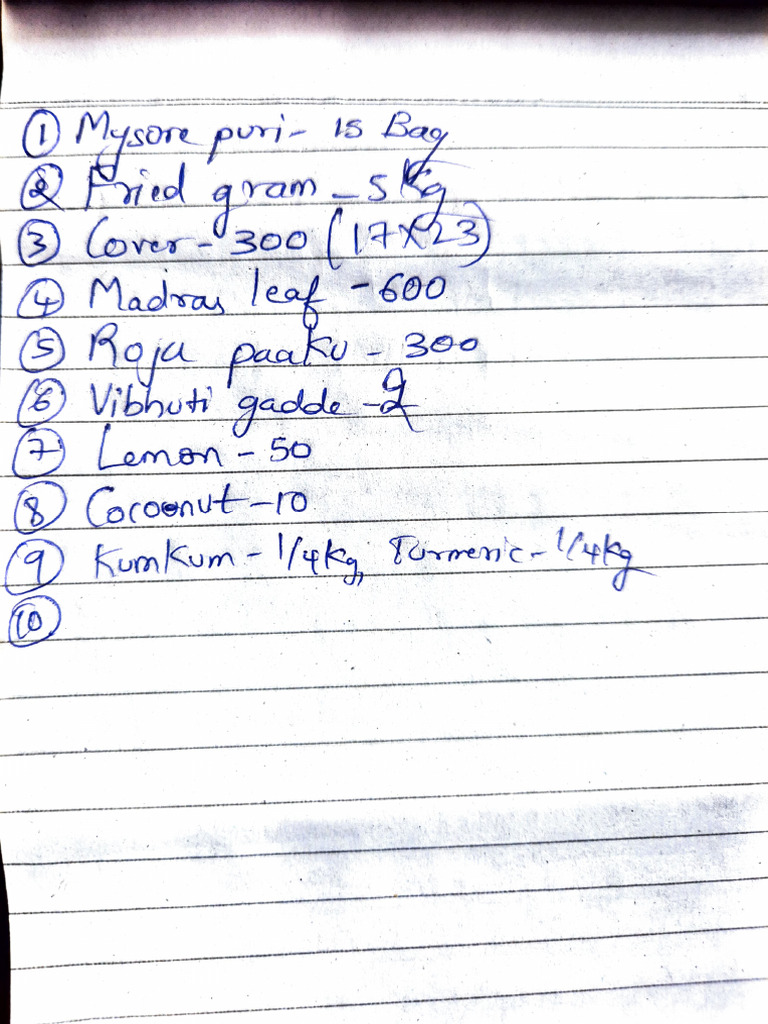 ① Mysore puri - 15 Bag
② Fried gram - 5 Kg
③ Cover - 300 (17x23)
④ Madras leaf - 600
⑤ Roja paaku - 300
⑥ Vibhuti gadde -
⑦ Lemon - 50
⑧ Cocoonut - 10
⑨ KumKum - 1/4 Kg, Turmeric - 1/4 Kg
⑩